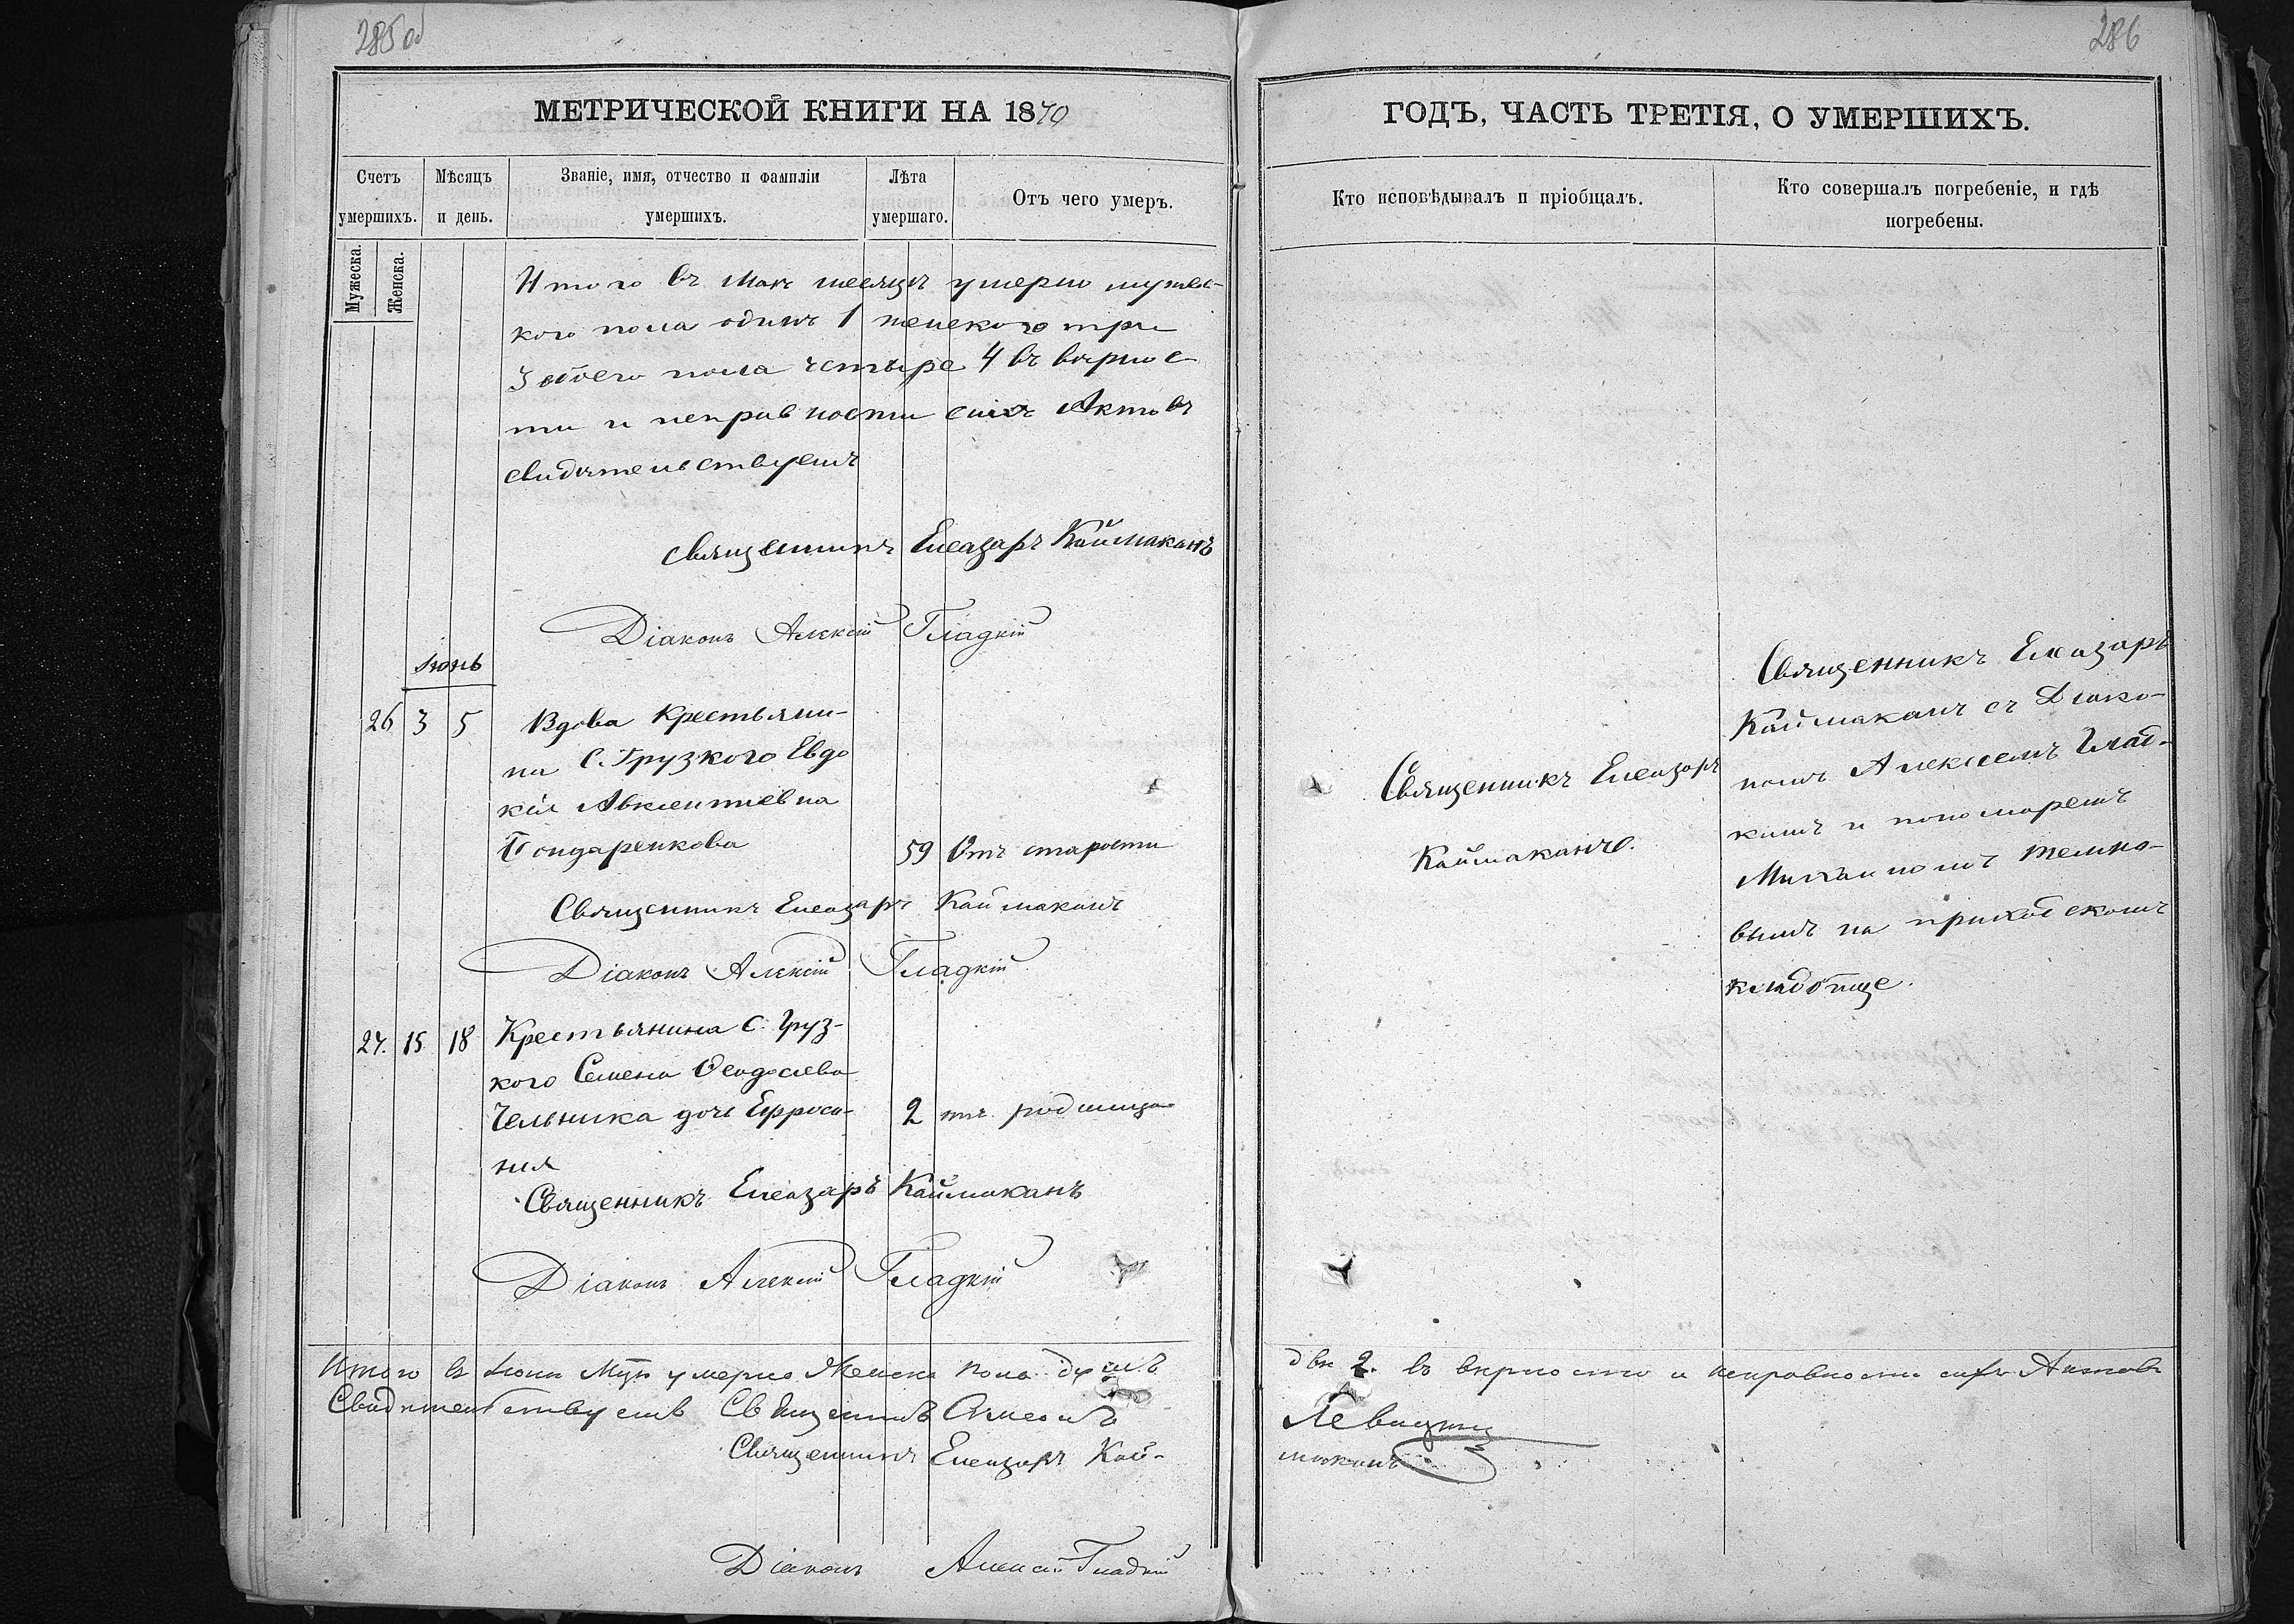 285 об
МЕТРИЧЕСКОЙ КНИГИ НА 1870
Счетъ умершихъ.
Мужеска.
Женска.
Мѣсяцъ и день.
Званіе, имя, отчество и фамиліи умершихъ.
Лѣта умершаго.
Отъ чего умеръ.
Итого въ Маѣ месяцѣ умерло мужес-
кого пола одинъ 1 женского три
3 обоего пола четыре 4 въ вѣрнос-
ти и неправности сихъ Актовъ
свидѣтельствуемъ
Священникъ Елеазаръ Каймаканъ
Діаконъ Алексій Гладкій
Іюнь
26 3 5 Вдова Крестьяни-
на С. Грузкого Евдо
кія Авксентіевна
Бондаренкова 59 Отъ старости
Священникъ Елеазаръ Каймаканъ
Діаконъ Алексій Гладкій
27. 15 18 Крестьянина С. Груз-
кого Семена Ѳеодосіева
Чельника дочь Ефроси- 2 отъ родимца
нія
Священникъ Елеазаръ Каймаканъ
Діаконъ Алексій Гладкій
Итого въ Іюнѣ Мцѣ умерло Женска пола душъ
Свидѣтельствуемъ Священникъ Симеонъ
Священникъ Елеазаръ Кай-
Діаконъ Алексій Гладкій
286
ГОДЪ, ЧАСТЬ ТРЕТІЯ, О УМЕРШИХЪ.
Кто исповѣдывалъ и пріобщалъ.
Кто совершалъ погребеніе, и гдѣ погребены.
Священникъ Елеазаръ
Каймаканъ.
Священникъ Елеазаръ
Каймаканъ съ Діако-
номъ Алексеемъ Глад-
кимъ и пономаремъ
Михаиломъ Темно-
вымъ на приходскомъ
кладбище.
двѣ 2. въ вѣрности и неправности сихъ Актовъ
Левицкій
маканъ